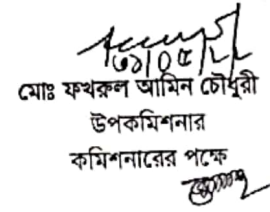 ৩১/০৫/২২
মোঃ ফখরুল আমিন চৌধুরী
উপকমিশনার
কমিশনারের পক্ষে